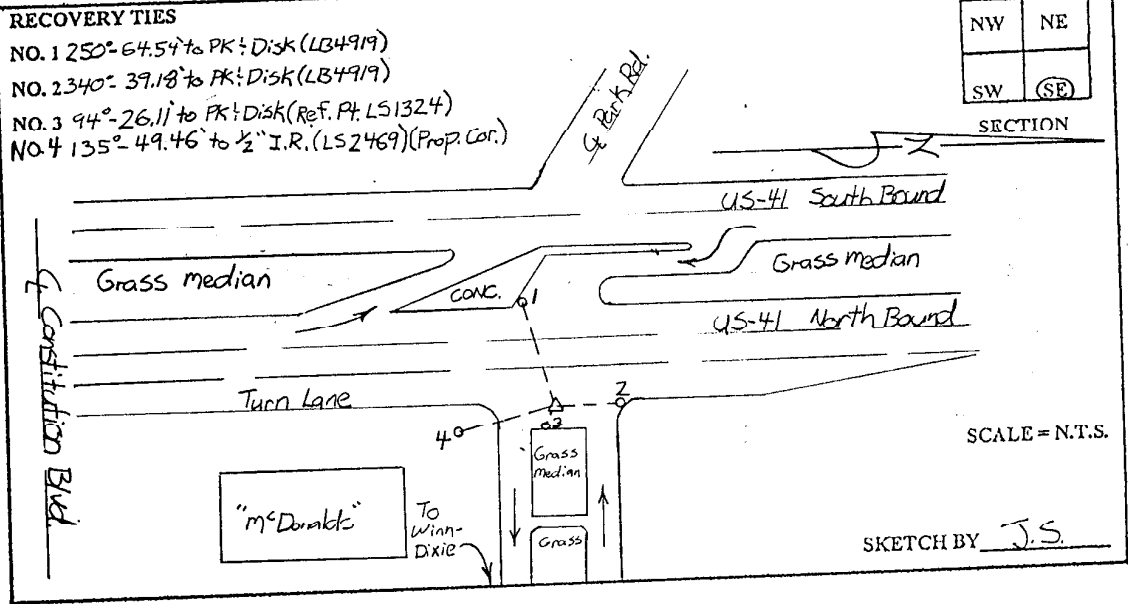 RECOVERY TIES
NO. 1 250°- 64.54' to PK & Disk (LB4919)
NO. 2 340°- 39.18' to PK & Disk (LB4919)
NO. 3 94°- 26.11' to PK & Disk (Ref. Pt. LS1324)
NO. 4 135°- 49.46' to 1/2" I.R. (LS2469) (Prop. Cor.)
NW NE
SW SE
SECTION
℄ Park Rd.
N
US-41 South Bound
Grass median
Grass median
CONC.
1
US-41 North Bound
℄ Constitution Blvd.
Turn Lane
2
3
4
Grass
median
SCALE = N.T.S.
"McDonalds"
To
Winn-
Dixie
Grass
SKETCH BY J.S.